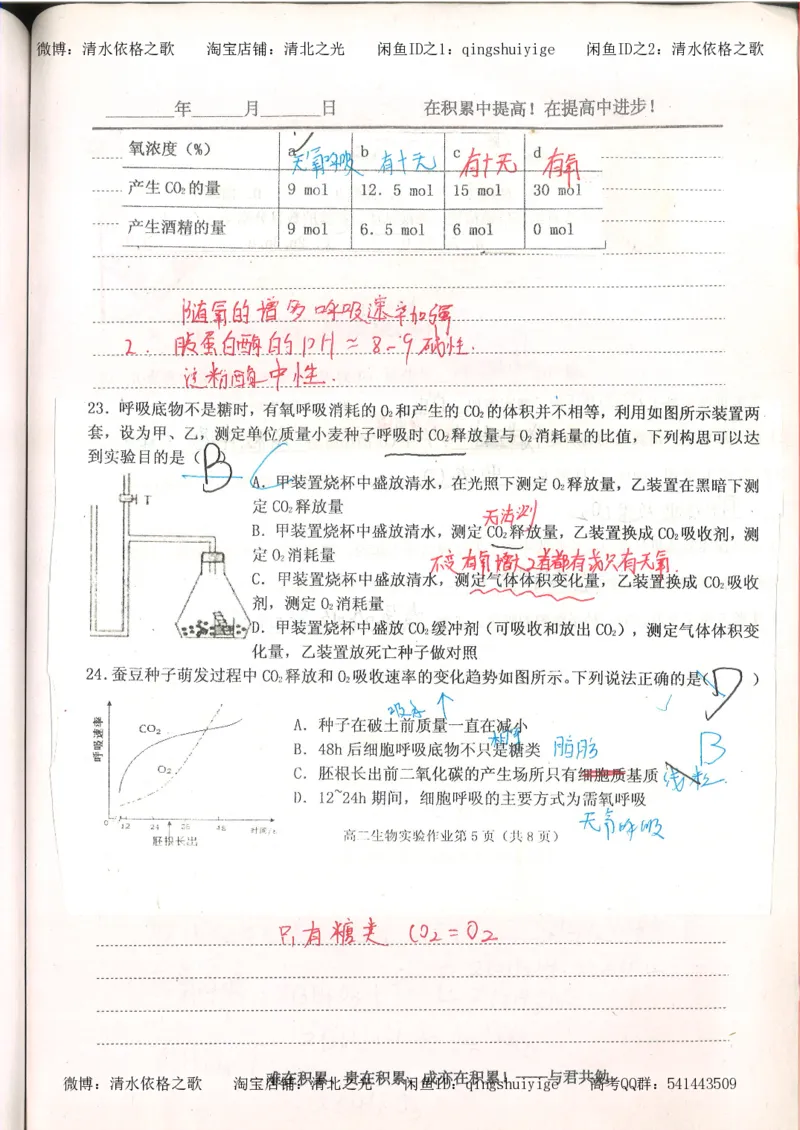 微博：清水依格之歌 淘宝店铺：清北之光 闲鱼ID之1：qingshuiyige 闲鱼ID之2：清水依格之歌
年 月 日 在积累中提高！在提高中进步！
氧浓度（%） a b c d
无氧呼吸 有+无 有+无 有氧
产生 CO₂的量 9 mol 12.5 mol 15 mol 30 mol
产生酒精的量 9 mol 6.5 mol 6 mol 0 mol
随氧的增多呼吸速率加强
2. 胰蛋白酶的PH≈8-9碱性.
淀粉酶中性.
23．呼吸底物不是糖时，有氧呼吸消耗的 O₂和产生的 CO₂的体积并不相等，利用如图所示装置两
套，设为甲、乙，测定单位质量小麦种子呼吸时 CO₂释放量与 O₂消耗量的比值，下列构思可以达
到实验目的是（B C
A．甲装置烧杯中盛放清水，在光照下测定 O₂释放量，乙装置在黑暗下测
定 CO₂释放量
无法测
B．甲装置烧杯中盛放清水，测定 CO₂释放量，乙装置换成 CO₂吸收剂，测
定 O₂消耗量
C．甲装置烧杯中盛放清水，测定气体体积变化量，乙装置换成 CO₂吸收
剂，测定 O₂消耗量
D．甲装置烧杯中盛放 CO₂缓冲剂（可吸收和放出 CO₂），测定气体体积变
化量，乙装置放死亡种子做对照
T
24.蚕豆种子萌发过程中 CO₂释放和 O₂吸收速率的变化趋势如图所示。下列说法正确的是（D ）
吸水↑
A．种子在破土前质量一直在减小
B．48h 后细胞呼吸底物不只是糖类 脂肪 B
C．胚根长出前二氧化碳的产生场所只有细胞质基质 线粒
D．12~24h 期间，细胞呼吸的主要方式为需氧呼吸
无氧呼吸
呼吸速率
CO₂
O₂
0 12 24 36 48 时间/h
胚根长出
高二生物实验作业第 5 页（共 8 页）
只有糖类 CO2=O2
难在积累，贵在积累，成亦在积累！——与君共勉
微博：清水依格之歌 淘宝店铺：清北之光 闲鱼ID：qingshuiyige 高考QQ群：541443509